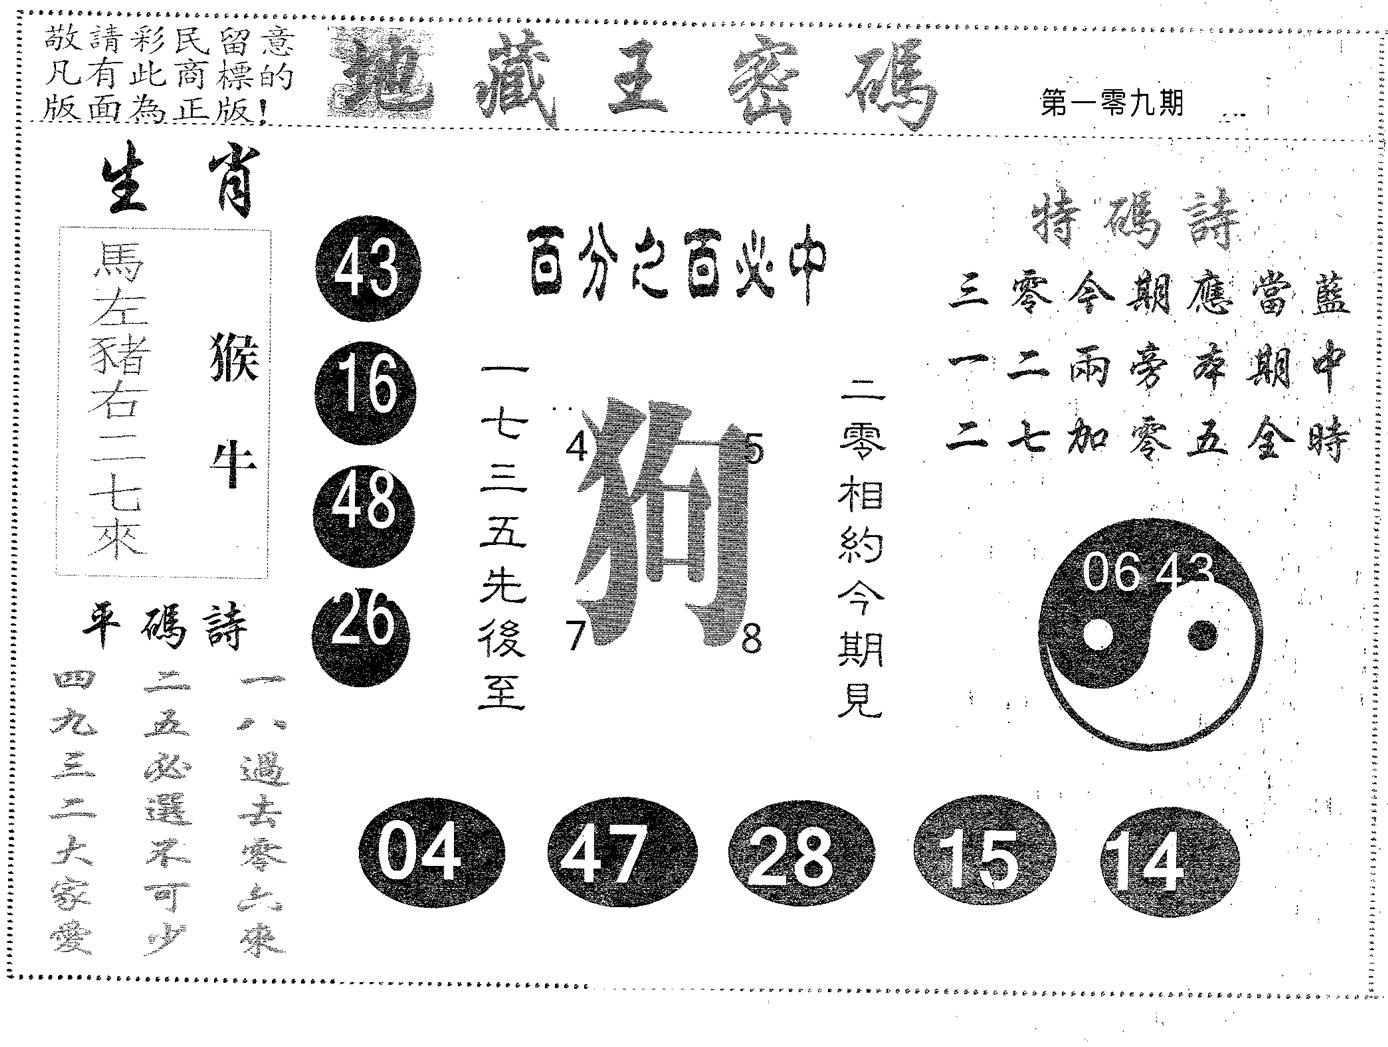 敬請彩民留意
凡有此商標的
版面為正版!
地藏王密碼
第一零九期
生肖
馬左豬右二七來
猴牛
43
16
48
26
百分之百必中
一七三五先後至
狗
4
5
7
8
二零相約今期見
特碼詩
三零今期應當藍
一二兩旁本期中
二七加零五全時
06 43
平碼詩
一八過去零六來
二五必選不可少
四九三二大家愛
04
47
28
15
14